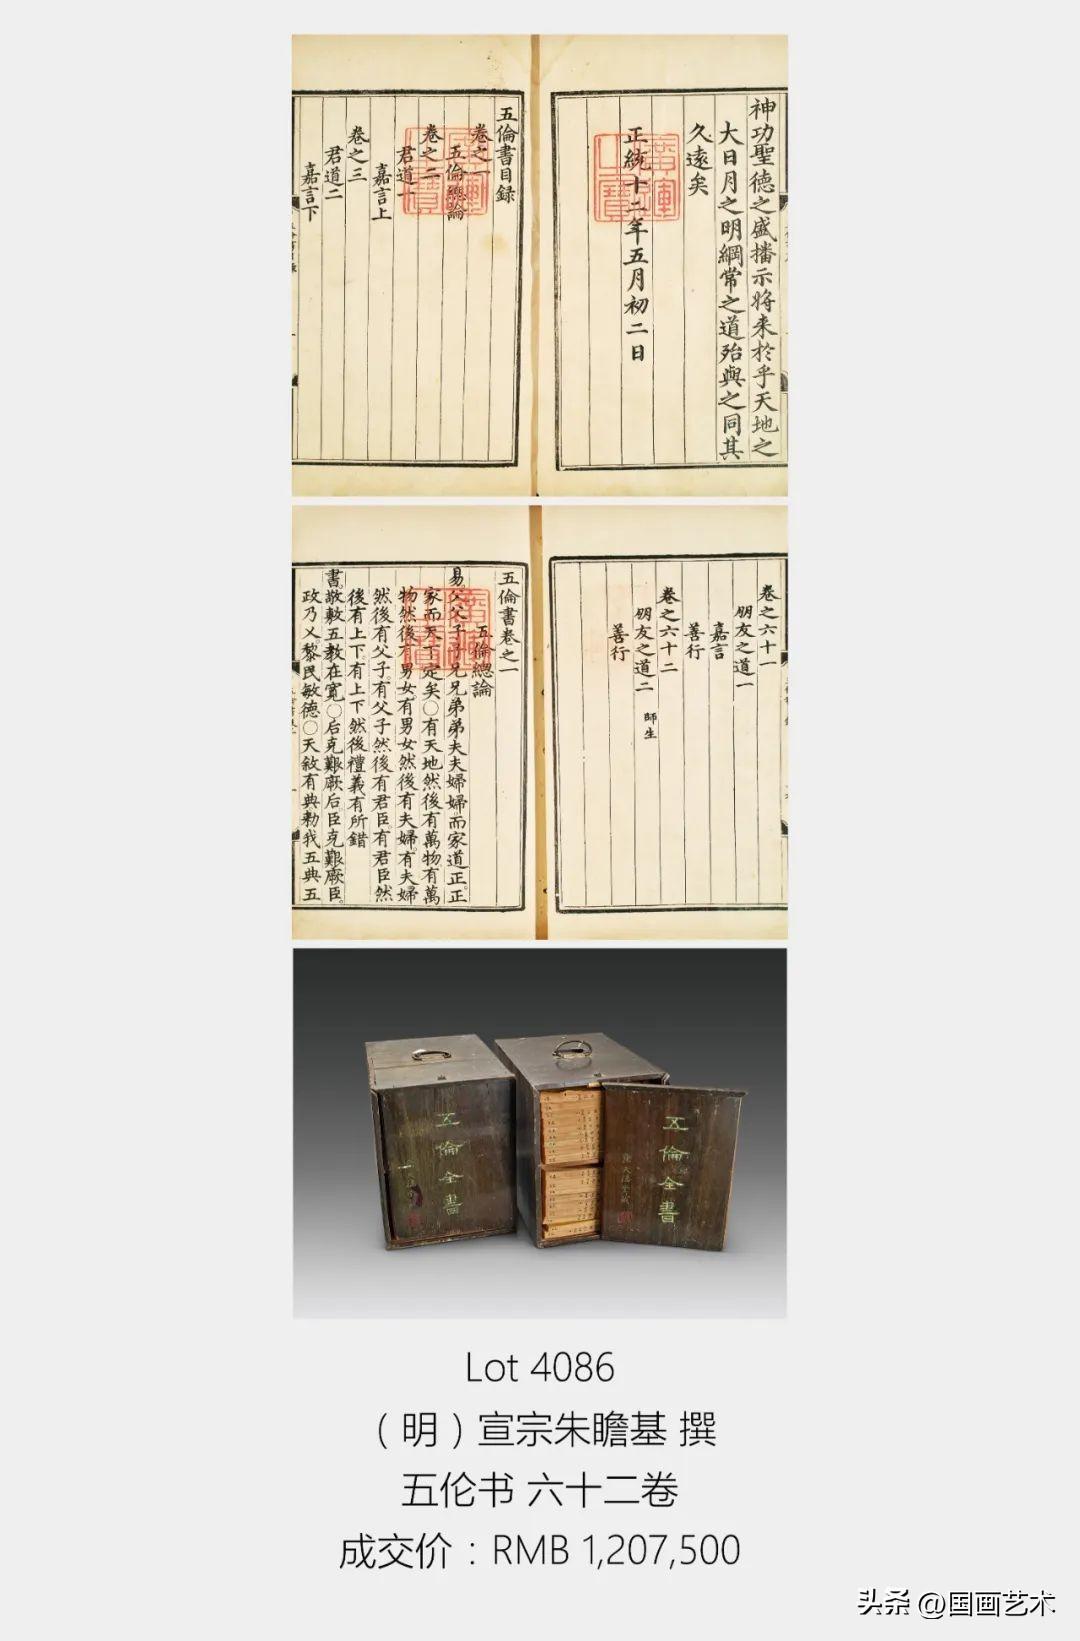 神功聖德之盛播示將来於乎天地之
大日月之明綱常之道殆與之同其
久遠矣
正統十二年五月初二日
五倫書目録
卷之一
五倫總論
卷之二
君道一
嘉言上
卷之三
君道二
嘉言下
卷之六十一
朋友之道一
嘉言
善行
卷之六十二
朋友之道二 師生
善行
五倫書卷之一
五倫總論
易。父父子子兄兄弟弟夫夫婦婦而家道正。正
家而天下定矣〇有天地然後有萬物。有萬
物然後有男女。有男女然後有夫婦。有夫婦
然後有父子。有父子然後有君臣。有君臣然
後有上下。有上下然後禮義有所錯
書。敬敷五教在寬〇后克艱厥后。臣克艱厥臣。
政乃乂。黎民敏德〇天敘有典。勑我五典五
五倫全書
五倫全書
Lot 4086
（明）宣宗朱瞻基 撰
五伦书 六十二卷
成交价：RMB 1,207,500
头条 @国画艺术